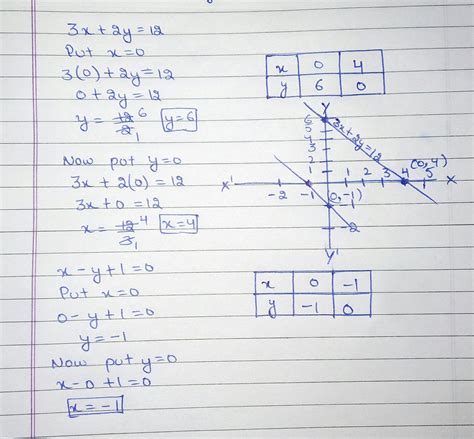 3x + 2y = 12
Put x = 0
3(0) + 2y = 12
0 + 2y = 12
y = 12/2 6 1 y = 6
Now put y = 0
3x + 2(0) = 12
3x + 0 = 12
x = 12/3 4 1 x = 4
x - y + 1 = 0
Put x = 0
0 - y + 1 = 0
y = -1
Now put y = 0
x - 0 + 1 = 0
x = -1
x 0 4
y 6 0
Y
6
5
4
3
2
1
3x + 2y = 12
(0,4)
X' -2 -1 1 2 3 4 5 X
(0,-1)
-2
Y'
x 0 -1
y -1 0